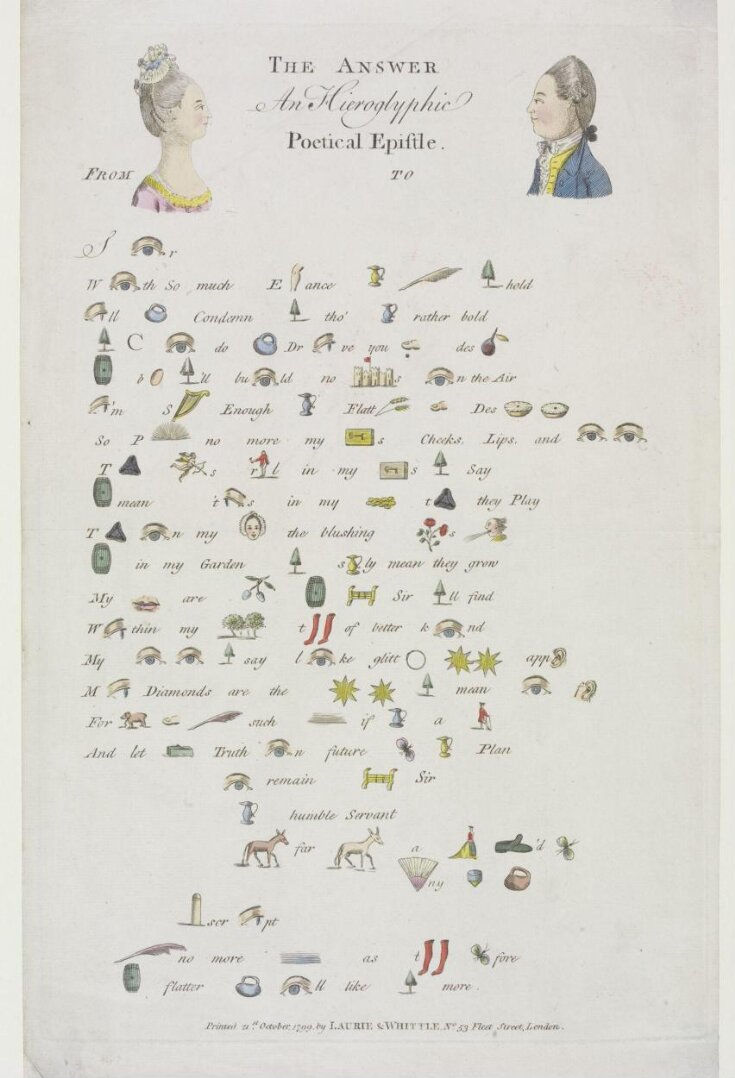 THE ANSWER
An Hieroglyphic
Poetical Epistle.
FROM TO
S r
W th So much E ance hold
ll Condemn tho' rather bold
C do Dr ve you des
b 'll bu ld no s n the Air
'm S Enough Flatt Des
So P no more my s Cheeks, Lips, and
T s r l in my s Say
mean 't s in my t they Play
T n my the blushing s
in my Garden s ly mean they grow
My are Sir ll find
W thin my t of better k nd
My say l ke glitt app
M Diamonds are the mean
For such if a
And let Truth n future Plan
remain Sir
humble Servant
far a 'd
ny
scr pt
no more as t fore
flatter ll like more.
Printed 21st October, 1799, by LAURIE & WHITTLE, No. 53 Fleet Street, London.